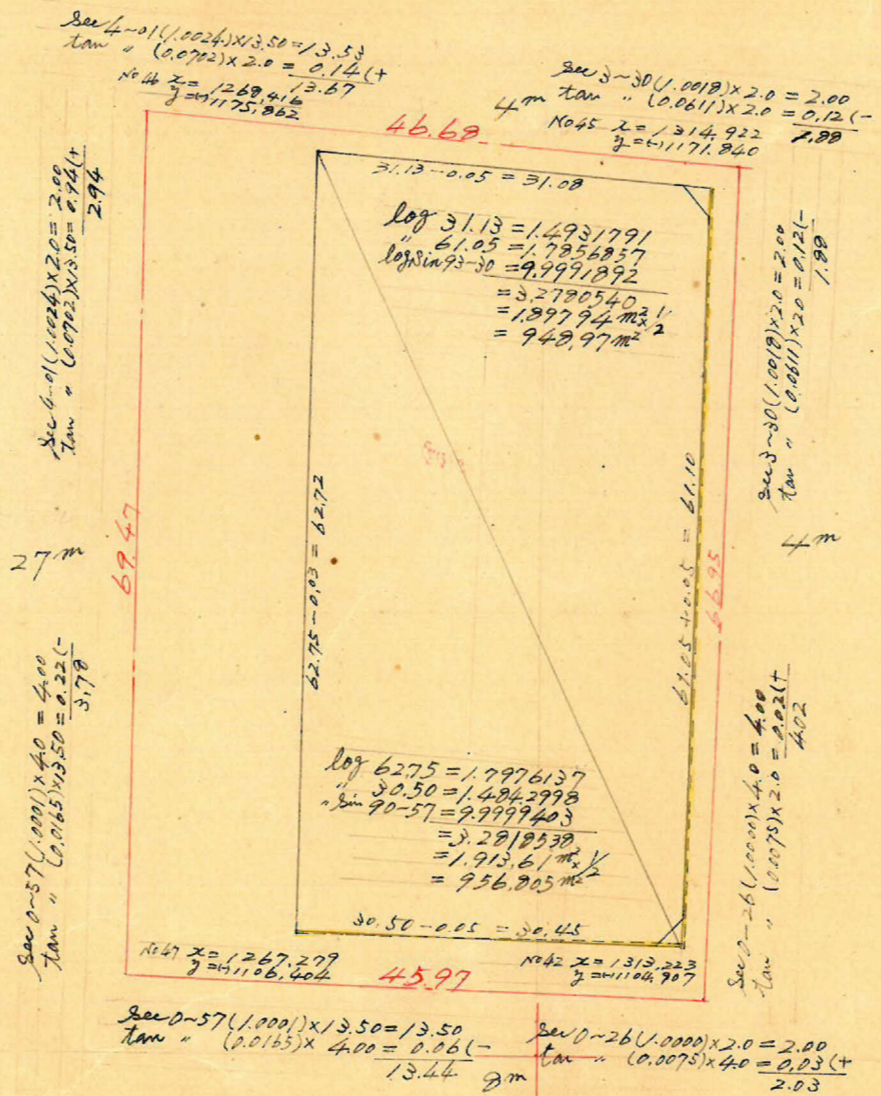 sec 4~01(1.0024)×13.50=13.53
tan " (0.0702)×2.0=0.14(+
13.67
No 46 x=1268,416
y=(-)1175,862
sec 3~30(1.0018)×2.0=2.00
4m tan " (0.0611)×2.0=0.12(-
1.88
No 45 x=1314.922
y=(-)1171.840
46.68
31.13-0.05=31.08
log 31.13=1.4931791
" 61.05=1.7856857
log sin 93-30=9.9991892
=3.2780540
=1.897 94 m² × 1/2
=948,97 m²
sec 4~01(1.0024)×2.0=2.00
tan " (0.0702)×13.50=0.94(+
2.94
sec 3~30(1.0018)×2.0=2.00
tan " (0.0611)×2.0=0.12(-
1.88
27 m
69.47
62.75-0.03=62.72
61.05+0.05=61.10
66.95
4 m
sec 0~57(1.0001)×4.0=4.00
tan " (0.0165)×13.50=0.22(-
3.78
sec 0~26(1.0000)×4.0=4.00
tan " (0.0075)×2.0=0.02(+
4.02
log 62.75=1.7976137
" 30.50=1.4842998
" sin 90-57=9.9999403
=3.2818538
=1.913,61 m² × 1/2
=956.805 m²
30.50-0.05=30.45
No 47 x=1267.279
y=(-)1106,404
45.97
No 42 x=1313,223
y=(-)1104,907
sec 0~57(1.0001)×13.50=13.50
tan " (0.0165)×4.00=0.06(-
13.44
8m
sec 0~26(1.0000)×2.0=2.00
tan " (0.0075)×4.0=0.03(+
2.03